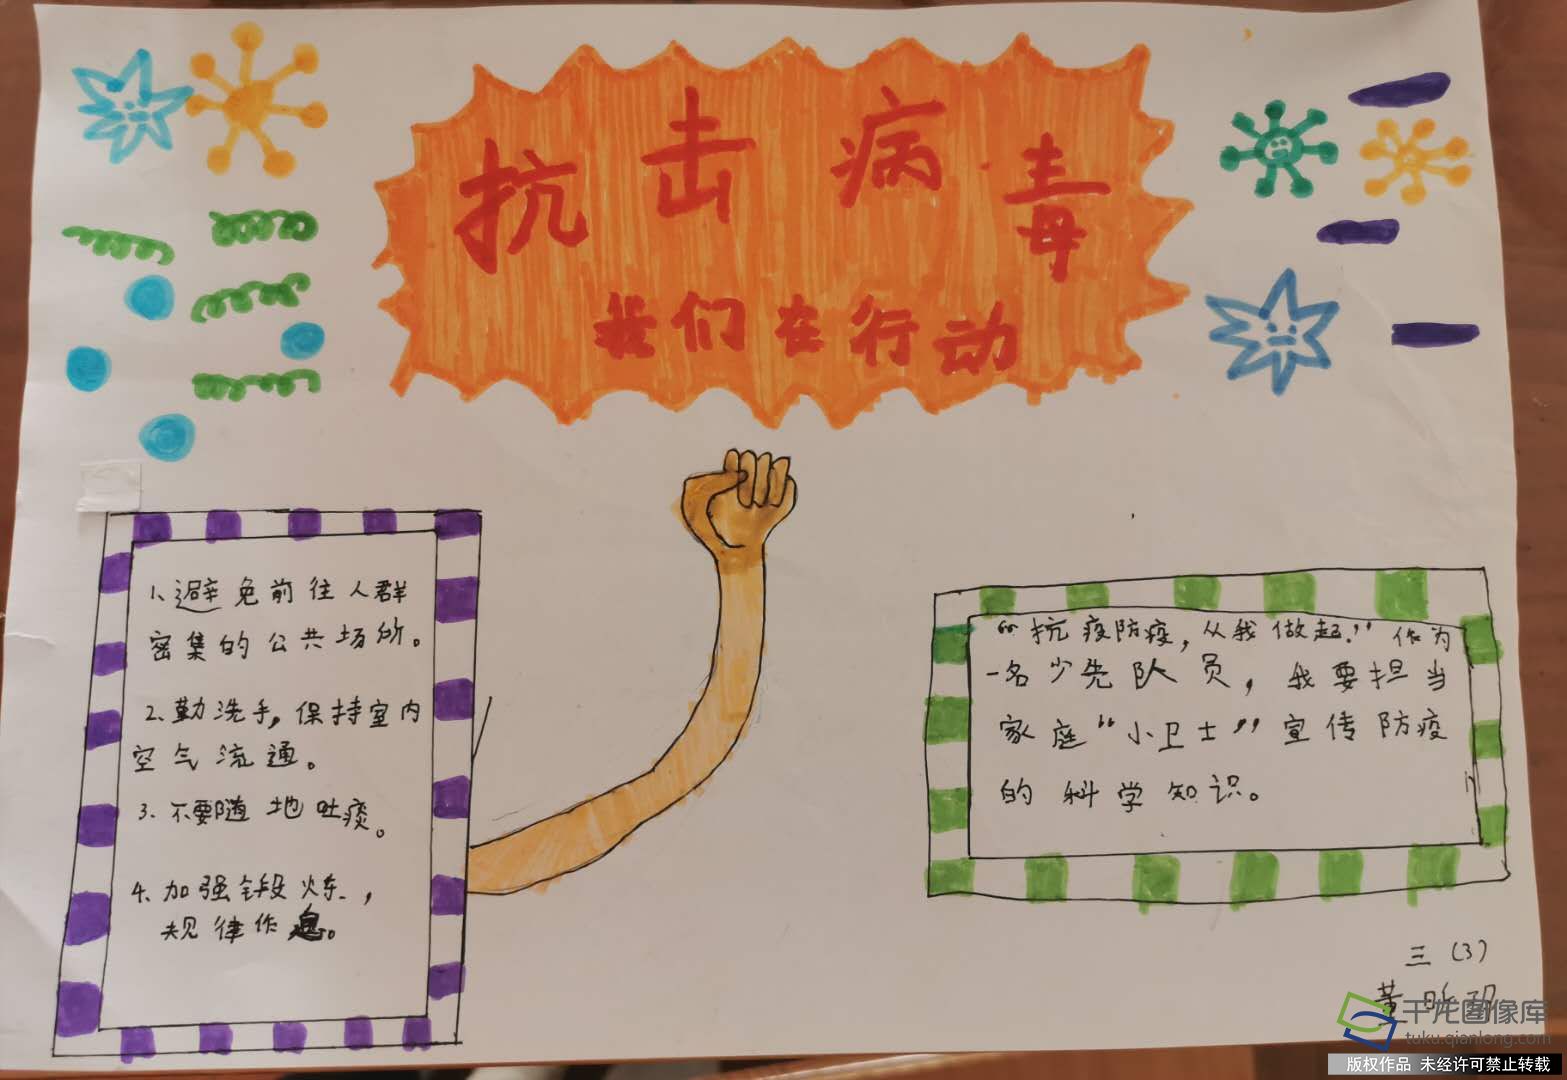 抗击病毒
我们在行动
1、避免前往人群
密集的公共场所。
2、勤洗手，保持室内
空气流通。
3、不要随地吐痰。
4、加强锻炼，
规律作息。
“抗疫防疫，从我做起！”作为
一名少先队员，我要担当
家庭“小卫士”宣传防疫
的科学知识。
三（3）
董昕
千龙图像库
tuku.qianlong.com
版权作品 未经许可禁止转载